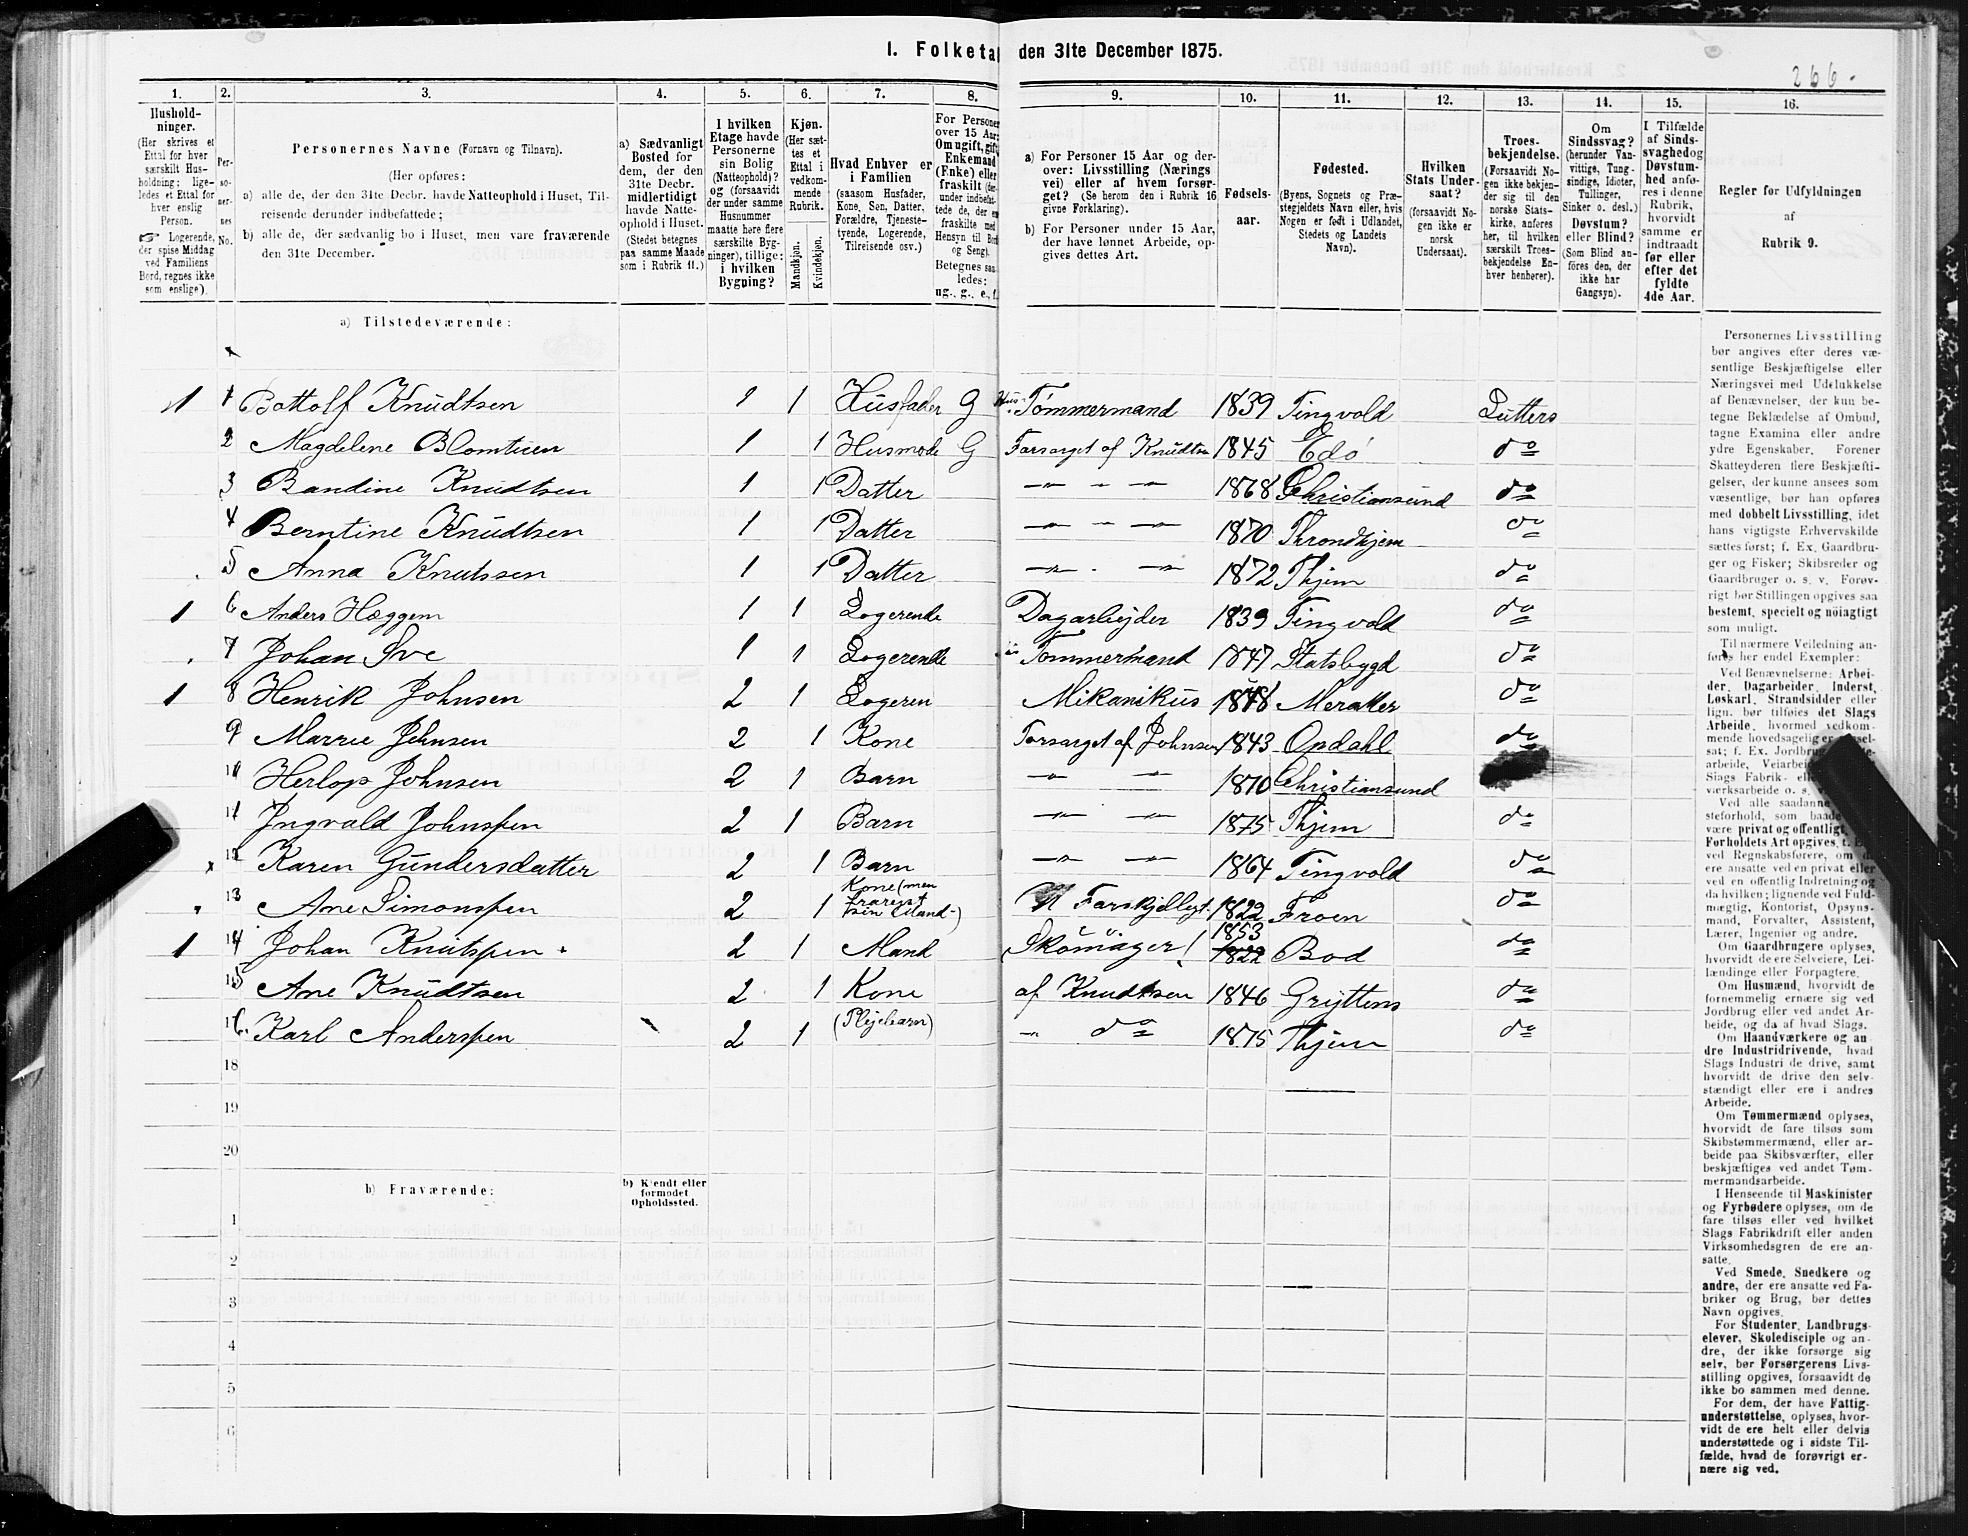 1. Folketal den 31te December 1875.
266.
1. 2. 3. 4. 5. 6. 7. 8. 9. 10. 11. 12. 13. 14. 15. 16.
Hushold-
ninger.
(Her skrives et
Ettal for hver
særskilt Hus-
holdning; lige-
ledes et Ettal for
hver enslig
Person.
☞ Logerende,
der spise Middag
ved Familiens
Bord, regnes ikke
som enslige).
Per-
so-
ner-
nes
No.
Personernes Navne (Fornavn og Tilnavn).
(Her opføres:
a) alle de, der den 31te Decbr. havde Natteophold i Huset, Til-
reisende derunder indbefattede;
b) alle de, der sædvanlig bo i Huset, men vare fraværende
den 31te December.
a) Sædvanligt
Bosted for
dem, der den
31te Decbr.
midlertidigt
havde Natte-
ophold i Huset.
(Stedet betegnes
paa samme Maade
som i Rubrik 11.)
I hvilken
Etage havde
Personerne
sin Bolig
(Natteophold)?
og (forsaavidt
der under samme
Husnummer
maatte høre flere
særskilte Byg-
ninger), tillige:
i hvilken
Bygning?
Kjøn.
(Her sæt-
tes et
Ettal i
vedkom-
mende
Rubrik.
Mandkjøn.
Kvindekjøn.
Hvad Enhver er
i Familien
(saasom Husfader,
Kone, Søn, Datter,
Forældre, Tjeneste-
tyende, Logerende,
Tilreisende osv.)
For Personer
over 15 Aar:
Om ugift, gift,
Enkemand
(Enke) eller
fraskilt
Betegnes saa-
ledes:
ug., g., e., f.
a) For Personer 15 Aar og der-
over: Livsstilling (Nærings
vei) eller af hvem forsør-
get? (Se herom den i Rubrik 16
givne Forklaring).
b) For Personer under 15 Aar,
der have lønnet Arbeide, op-
gives dettes Art.
Fødsels-
aar.
Fødested.
(Byens, Sognets og Præ-
stegjeldets Navn eller, hvis
Nogen er født i Udlandet,
Stedets og Landets
Navn).
Hvilken
Stats Under-
saat?
(forsaavidt No-
gen ikke er
norsk
Undersaat).
Troes-
bekjendelse.
(Forsaavidt No-
gen ikke bekjen-
der sig til den
norske Stats-
kirke, anføres
her, til hvilken
særskilt Troes-
bekjendelse En-
hver henhører).
Om
Sindssvag?
(herunder Van-
vittige, Tung-
sindige, Idioter,
Tullinger,
Sinker o. desl.)
Døvstum?
eller Blind?
(Som Blind an-
føres den, der
ikke har
Gangsyn).
I Tilfælde
af Sinds-
svaghed og
Døvstum-
hed anfø-
res i denne
Rubrik,
hvorvidt
samme er
indtraadt
før eller
efter det
fyldte
4de Aar.
Regler før Udfyldningen
af
Rubrik 9.
a) Tilstedeværende:
1 1 Bottolf Knudtsen 1 1 Husfader G Hus- Tømmermand 1839 Tingvold Lutters
2 Magdelene Blomtuen 1 1 Husmode G Forsørget af Knudtsen 1845 Edø do
3 Bandine Knudtsen 1 1 Datter — „ — 1868 Christiansund do
4 Berntine Knudtsen 1 1 Datter — „ — 1870 Throndhjem do
5 Anna Knutssen 1 1 Datter — „ — 1872 Thjem do
1 6 Anders Hæggem 1 1 Logerende Dagarbejder 1839 Tingvold do
7 Johan Sve 1 1 Logerende Tømmermand 1847 Statsbygd do
1 8 Henrik Johnsen 2 1 Logeren Mikanikus 1848 Meraker do
9 Marrie Johnsen 2 1 Kone Forsørget af Johnsen 1843 Opdahl do
10 Herlop Johnsen 2 1 Barn — „ — 1870 Christiansund
11 Ingvald Johnssen 2 1 Barn — „ — 1875 Thjem do
12 Karen Gundersdatter 2 1 Barn — „ — 1864 Tingvold do
13 Ane Simonssen 2 1 Kone (men frareist sin Mand-) Forskjelligt. 1822 Froen do
1 14 Johan Knutssen 2 1 Mand Skomager! 1822 1853 Bod do
15 Ane Knudtsen 2 1 Kone af Knudtsen 1846 Gryttens do
16. Karl Anderssen 2 1 (Plejebarn) „ do 1875 Thjem do
18
19
20
b) Fraværende:
b) Kjendt eller
formodet
Opholdssted.
1
2
3
4
5
6
Personernes Livsstilling
bør angives efter deres væ-
sentlige Beskjæftigelse eller
Næringsvei med Udelukkelse
af Benævnelser, der kun be-
tegne Beklædelse af Ombud,
tagne Examina eller andre
ydre Egenskaber. Forener
Skatteyderen flere Beskjæfti-
gelser, der kunne ansees som
væsentlige, bør han opføres
med dobbelt Livsstilling, idet
hans vigtigste Erhvervskilde
sættes først; f. Ex. Gaardbru-
ger og Fisker; Skibsreder og
Gaardbruger o. s. v. Forøv-
rigt bør Stillingen opgives saa
bestemt, specielt og nöiagtigt
som muligt.
Til nærmere Veiledning an-
føres her endel Exempler:
Ved Benævnelserne: Arbei-
der, Dagarbeider, Inderst,
Løskarl, Strandsidder eller
lign. bør tilføies det Slags
Arbeide, hvormed vedkom-
mende hovedsagelig er
sat; f. Ex. Jordbrug
beide, Veiarbeide
Slags Fabrik-
værksarbeide o. s. v.
Ved alle saadanne
steforhold, som baade
være privat og offentligt,
Forholdets Art opgives,
ved Regnskabsførere, om
ere ansatte ved en privat eller
ved en offentlig Indretning og
da hvilken; lignende ved Fuld-
mægtig, Kontorist, Opsyns-
mand, Forvalter, Assistent,
Lærer, Ingeniør og andre.
Om Gaardbrugere oplyses,
hvorvidt de ere Selveiere, Lei-
lændinge eller Forpagtere.
Om Husmænd, hvorvidt de
fornemmelig ernære sig ved
Jordbrug eller ved andet Ar-
beide, og da af hvad Slags.
Om Haandværkere og an-
dre Industridrivende, hvad
Slags Industri de drive, samt
hvorvidt de drive den selv-
stændigt eller ere i andres
Arbeide.
Om Tømmermænd oplyses,
hvorvidt de fare tilsøs som
Skibstømmermænd, eller ar-
beide paa Skibsværfter, eller
beskjæftiges ved andet Tøm-
mermandsarbeide.
I Henseende til Maskinister
og Fyrbødere oplyses, om de
fare tilsøs eller ved hvilket
Slags Fabrikdrift eller anden
Virksomhedsgren de ere an-
satte.
Ved Smede, Snedkere og
andre, der ere ansatte ved Fa-
briker og Brug, bør dettes
Navn opgives.
For Studenter, Landbrugs-
elever, Skoledisciple og an-
dre, der ikke forsørge sig
selv, bør Forsørgerens Livs-
stilling opgives, forsaavidt de
ikke bo sammen med denne.
For dem, der have Fattig-
understøttelse, oplyses, hvor-
vidt de ere helt eller delvis
understøttede og i sidste Til-
fælde, hvad de forøvrigt er-
nære sig ved.